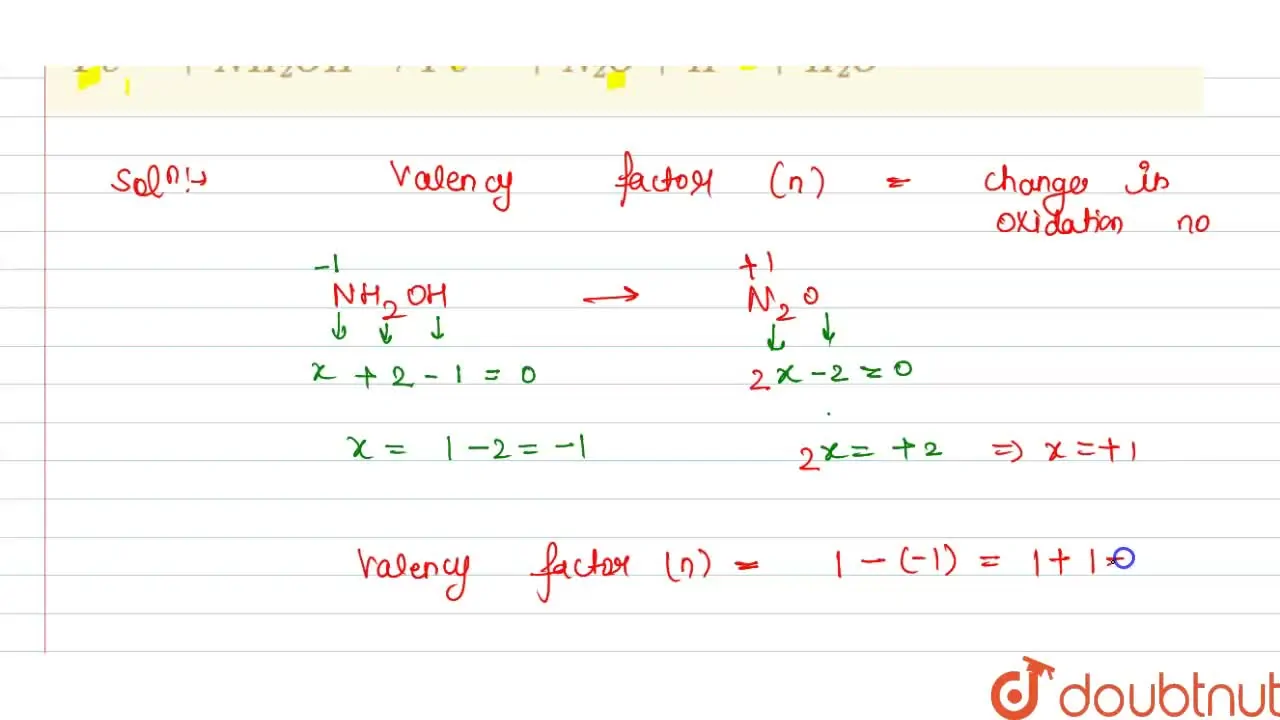 Solⁿ:→ Valency factor (n) = change in
oxidation no
-1 +1
NH₂OH → N₂O
↓ ↓ ↓ ↓ ↓
x + 2 - 1 = 0 2x - 2 = 0
x = 1 - 2 = -1 2x = +2 ⇒ x = +1
Valency factor (n) = 1 - (-1) = 1 + 1 =
doubtnut